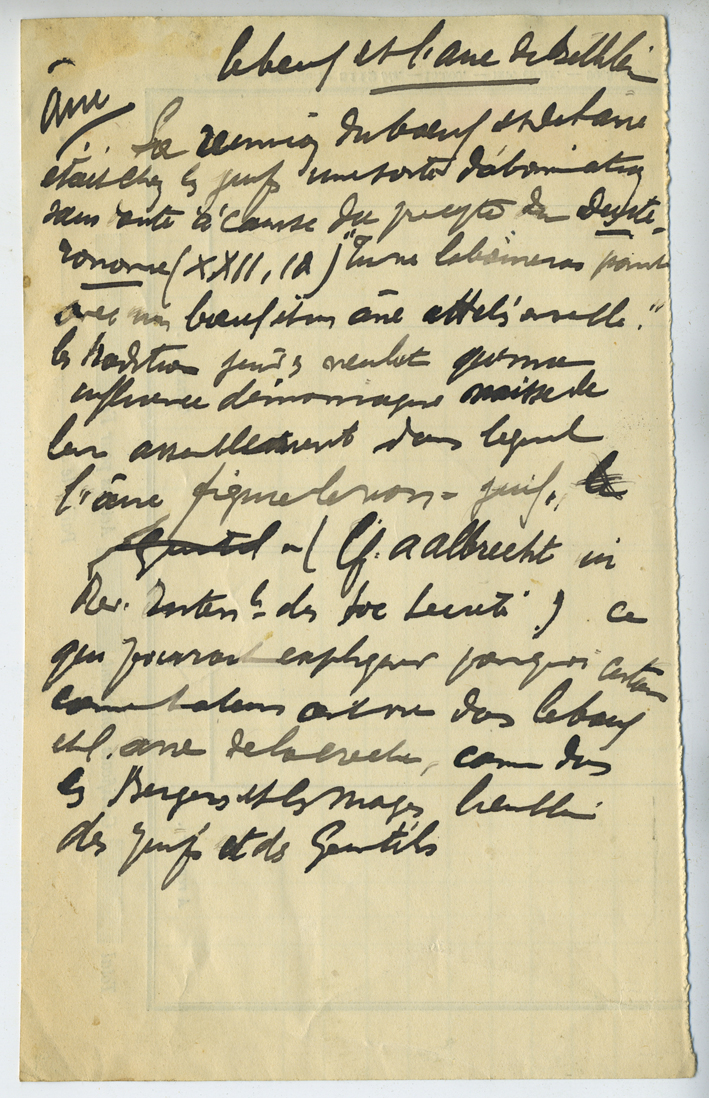 le bœuf et l'âne de Bethléem
âne
La réunion du bœuf et de l'âne
était chez les juifs une sorte d'abomination
à cause du précepte du Deuté-
ronome (XXII, 10) "Tu ne laboureras point
avec un bœuf et un âne attelés ensemble."
les traditions juives veulent qu'une
influence démoniaque naisse de
leur assemblement dans lequel
l'âne figure le non-juif, le
gentil - (Cf. A Albrecht in
Rev. Intern le des Soc Secrètes) ce
qui pourrait expliquer pourquoi certains
commentateurs ont vu dans le bœuf
et l'âne de la crèche, comme dans
les Bergers et les Mages l'emblème
des juifs et des Gentils